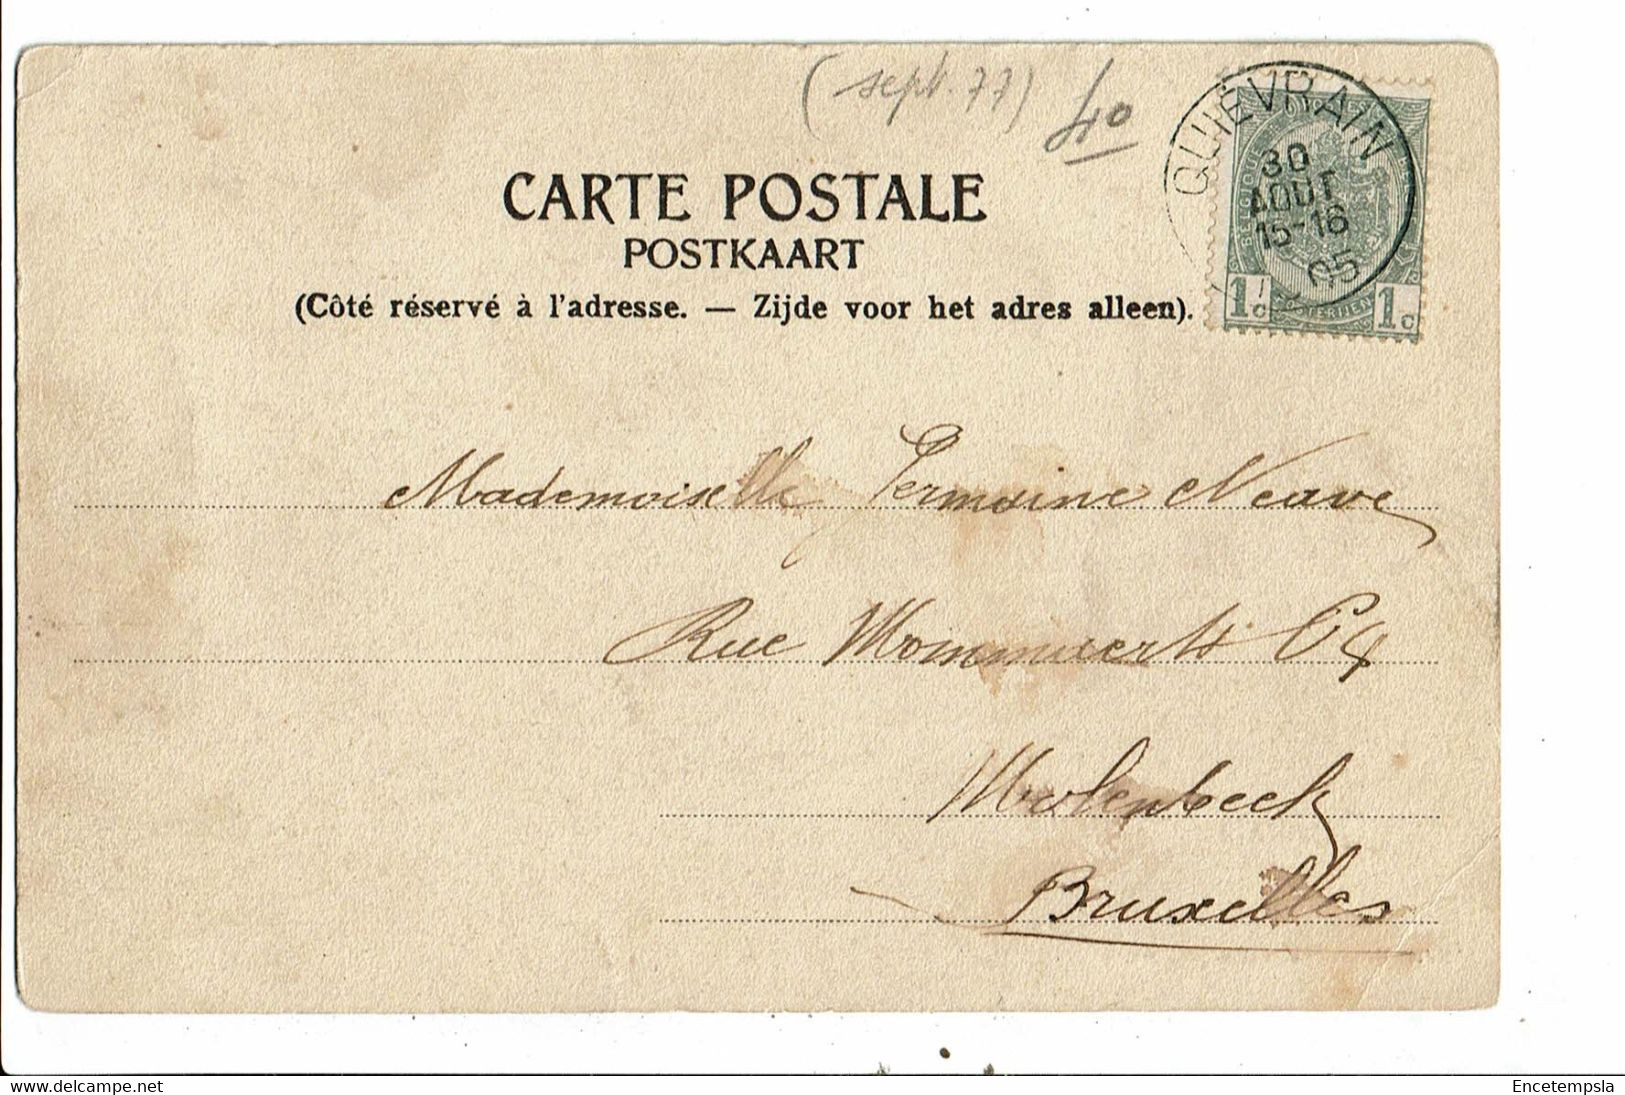 (sept. 77)
40
QUIÉVRAIN
30
AOUT
15-16
05
BELGIQUE
1c 1c
CARTE POSTALE
POSTKAART
(Côté réservé à l'adresse. — Zijde voor het adres alleen).
Mademoiselle Germaine Neave
Rue Mommaerts 64
Molenbeek
Bruxelles
delcampe.net
Encetempsla